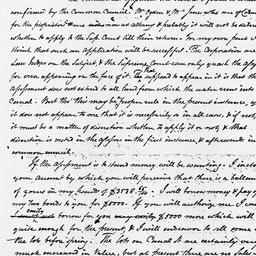 confirmed by the Common Council. Mr Ogden & Mr Jones who are of Coun
for the petitioners are under now at Albany & probably it will not be determ
whether to apply to the Sup. Court till their return. for my own part I
think that such an application will be successful. The Corporation are
Law Judges on the subject, & the Supreme Court can only quash the assess
for error appearing on the face of it. The error supposed to appear in it is that the
assessment does not extend to all land from which the water runs into
Canal. But tho' this may be proper rule in the present instance, y
it does not appear to me that it is necessarily so in all cases, & if no
it must be a matter of discretion whether to apply it or not, & that
discretion is vested in the assessors in the first instance, & afterwards in
common council.
If the assessment is to stand money will be wanting. I inclo
your account by which you will perceive that there is a ballance
of yours in my hands of $3578. I will borrow money & pay off
my two bonds to you for $8000. If you will authorize me I can
easily borrow for you $8000 more which will
quite enough for the present, & I will endeavour to sell some
the lots before spring. The lots on Canal St are certainly very
much increased in value, but at present there are no sales